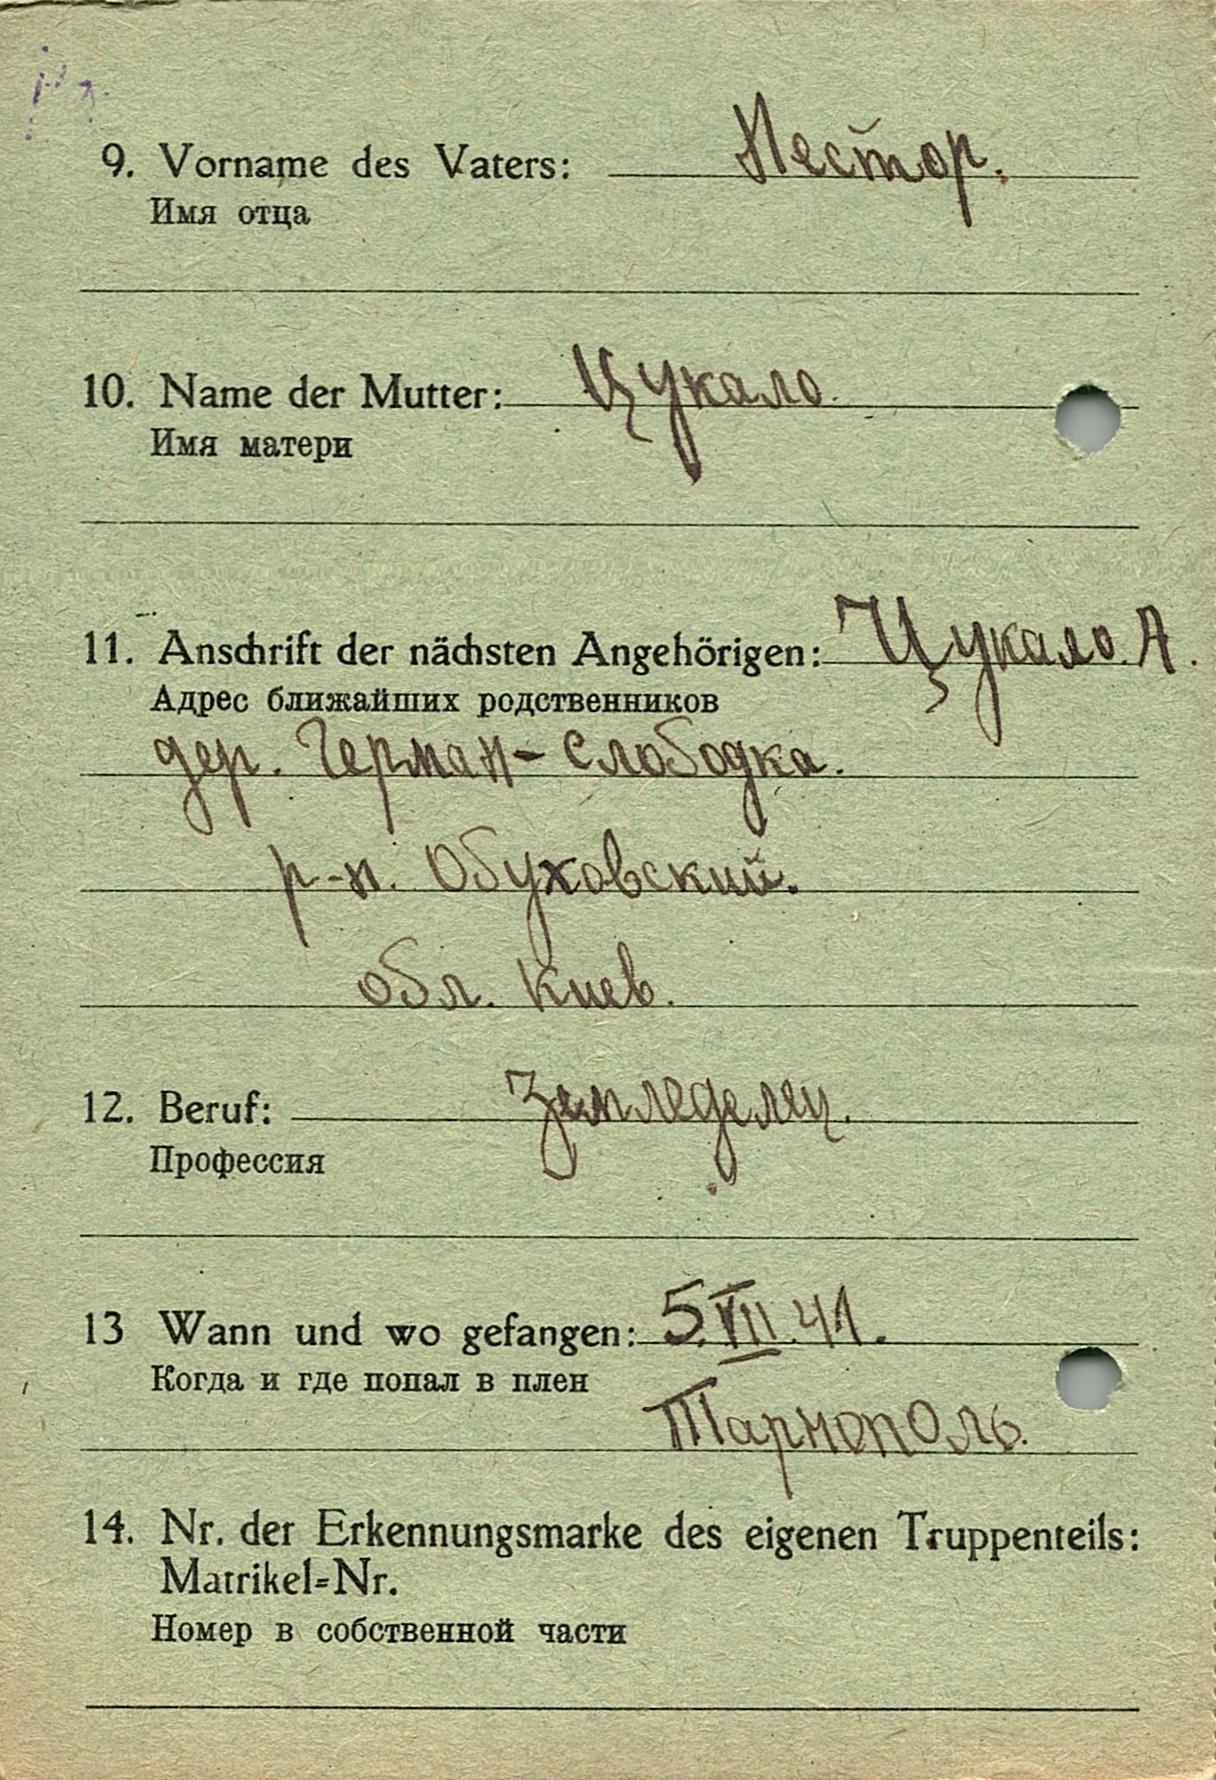 9. Vorname des Vaters: Нестор.
Имя отца
10. Name der Mutter: Цукало.
Имя матери
11. Anschrift der nächsten Angehörigen: Цукало. А.
Адрес ближайших родственников
дер. Герман-Слободка.
р-н. Обуховский.
обл. Киев.
12. Beruf: Земледелец.
Профессия
13 Wann und wo gefangen: 5.VII.41.
Когда и где попал в плен
Тарнополь.
14. Nr. der Erkennungsmarke des eigenen Truppenteils:
Matrikel=Nr.
Номер в собственной части